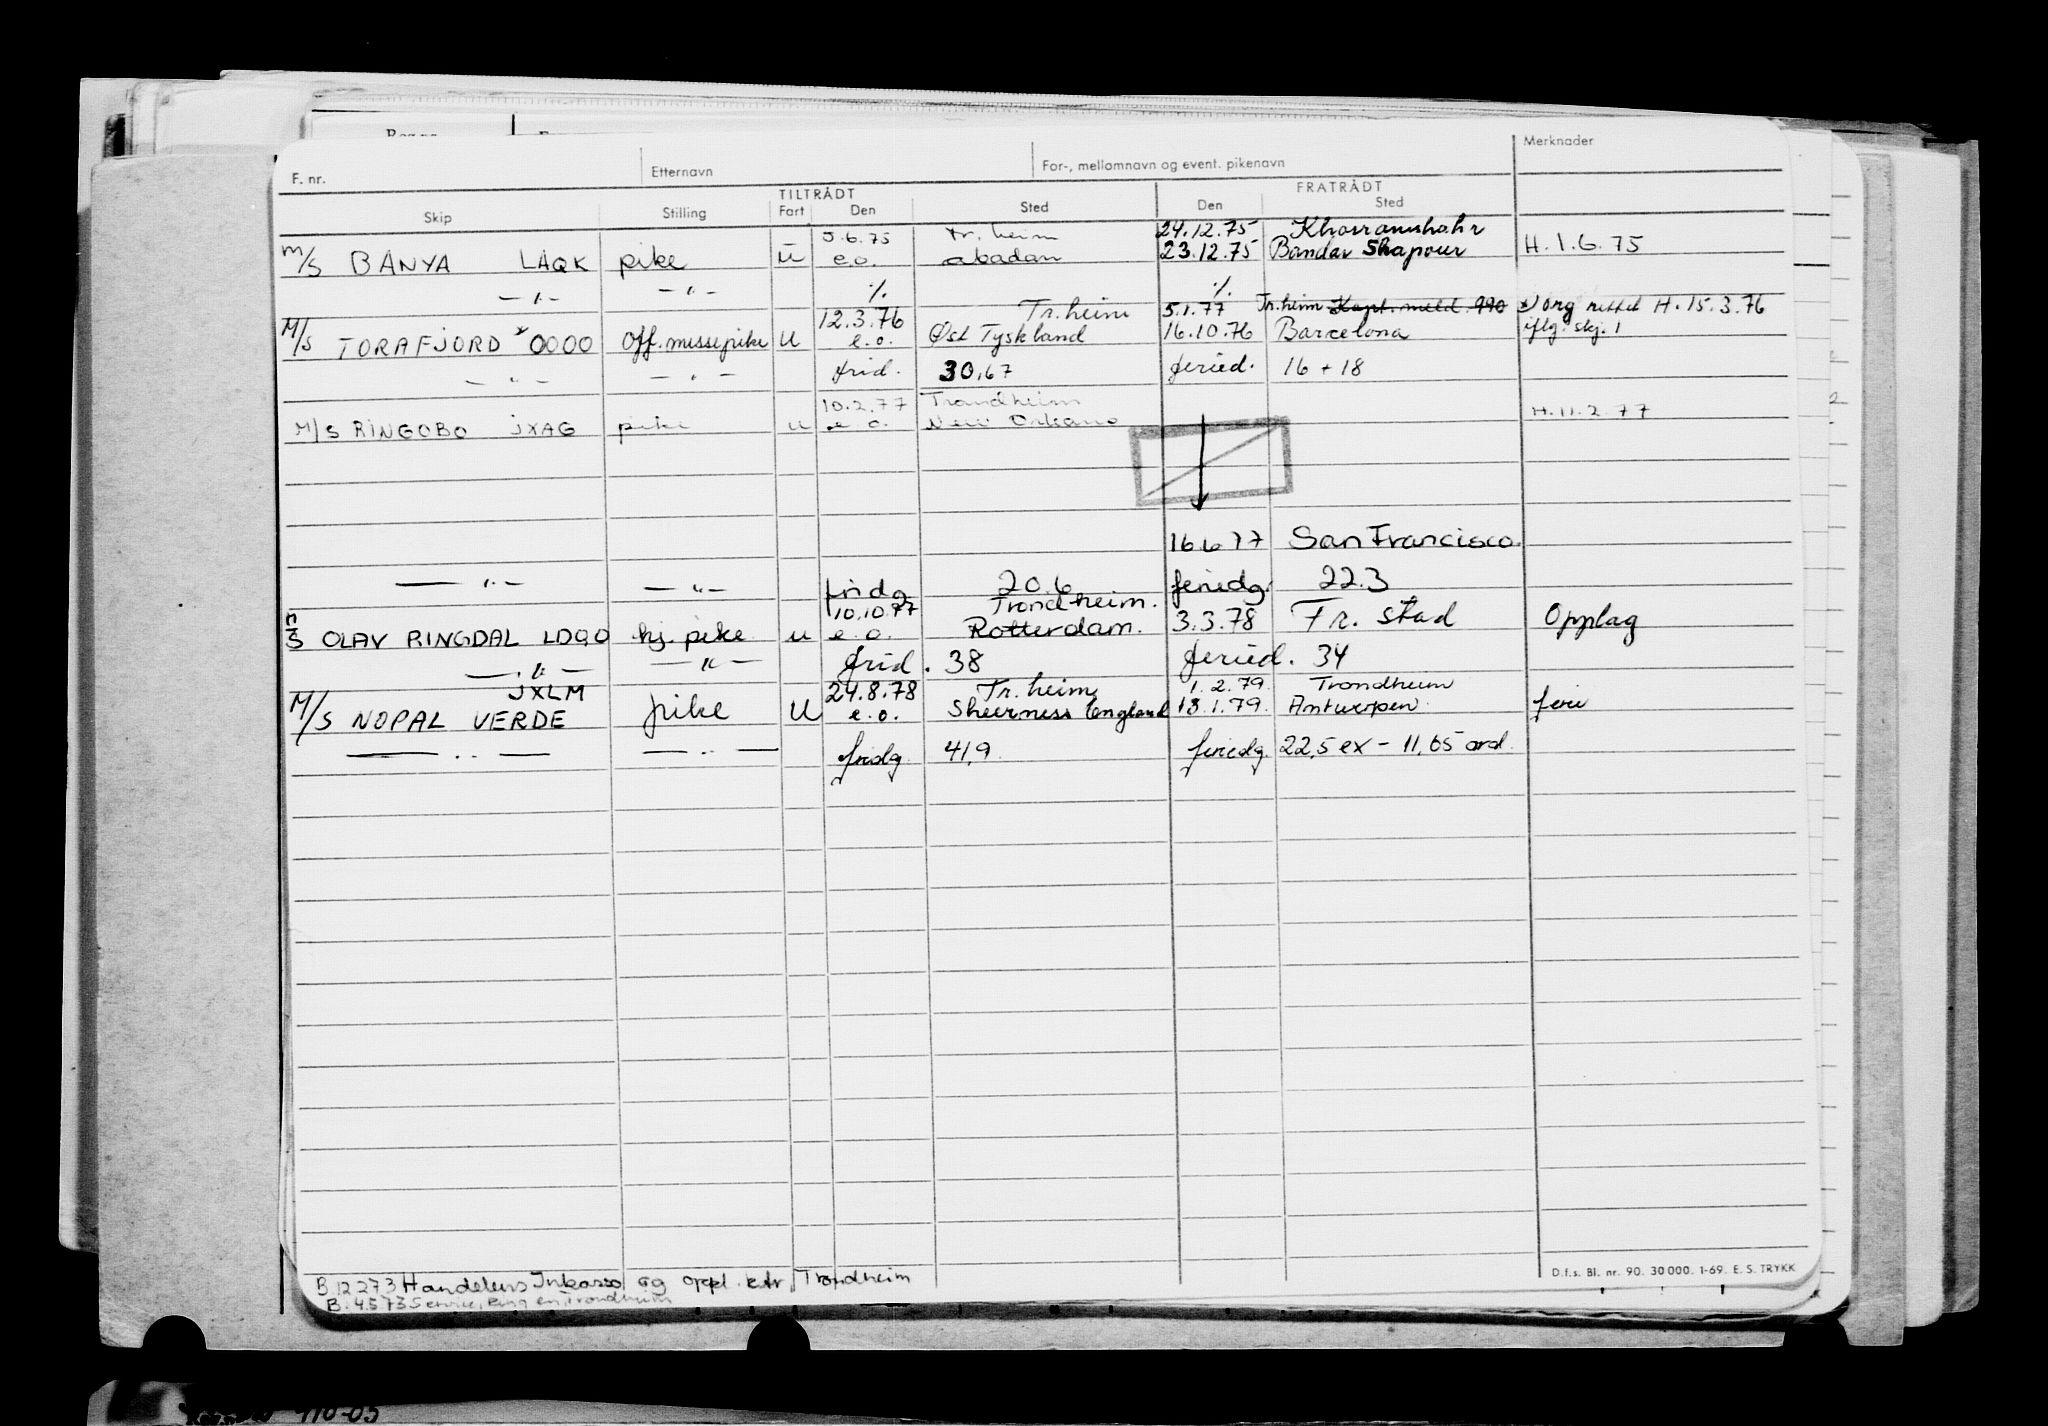 F. nr. Etternavn For-, mellomnavn og event. pikenavn Merknader
TILTRÅDT FRATRÅDT
Skip Stilling Fart Den Sted Den Sted
5.6.75 tr. heim 24.12.75 Khorramshahr
M/S BANYA LAQK pike u e.o. abadan 23.12.75 Bandar Shapour H. 1.6.75
— " — — " — % %
12.3.76 Tr.heim 5.1.77 Tr.heim Kapt. meld. 990 *) org rettet H. 15.3.76
M/S TORAFJORD * 0000 Off. messepike U e.o. Øst Tyskland 16.10.76 Barcelona iflg. skj. 1
— " — — " — frid. 30,67 feried. 16 + 18
10.2.77 Trondheim
M/S RINGOBO JXAG pike u e.o. New Orleans H. 11.2.77
16.6.77 San Francisco.
— " — — " — fridg 20.6 feriedg. 22.3
10.10.77 Trondheim.
M/S OLAV RINGDAL LDQO hj. pike u e.o. Rotterdam. 3.3.78 Fr. stad Opplag
— " — — " — frid. 38 feried. 34
JXLM 24.8.78 Tr. heim 1.2.79. Trondheim
M/S NOPAL VERDE pike U e.o. Sheerness England 13.1.79. Antwerpen. ferie
— " — — " — fridg. 41,9 feriedg. 22,5 ex - 11,65 ord.
D.f.s. Bl. nr. 90. 30 000. 1-69. E. S. TRYKK
B. 12273 Handelens Inkasso og oppl. ktr. Trondheim
B. 4573 Service, Ring en, Trondheim
410-05